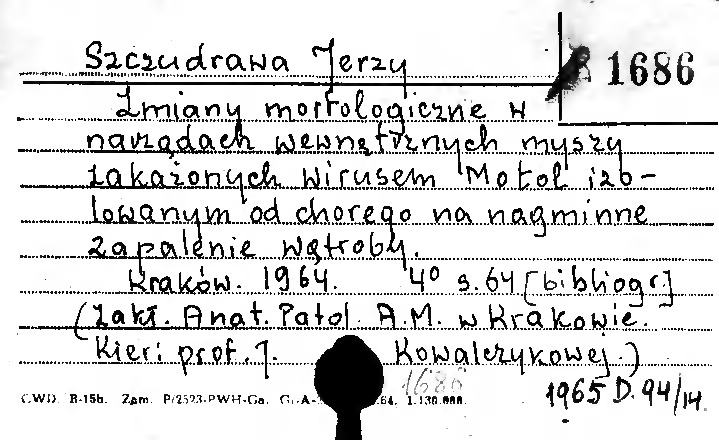 Szczudrawa Jerzy
1686
Zmiany morfologiczne w
narządach wewnętrznych myszy
zakażonych wirusem "Motol izo-
lowanym od chorego na nagminne
zapalenie wątroby.
Kraków. 1964. 4° s. 64 [bibliogr.]
(Zakł. Anat. Patol. A.M. w Krakowie.
Kier: prof. J. Kowalczykowej.)
1686
1965 D. 94/14.
CWD. R-15b. Zam. P/2523-PWH-Ga. 64. 1.130.000.